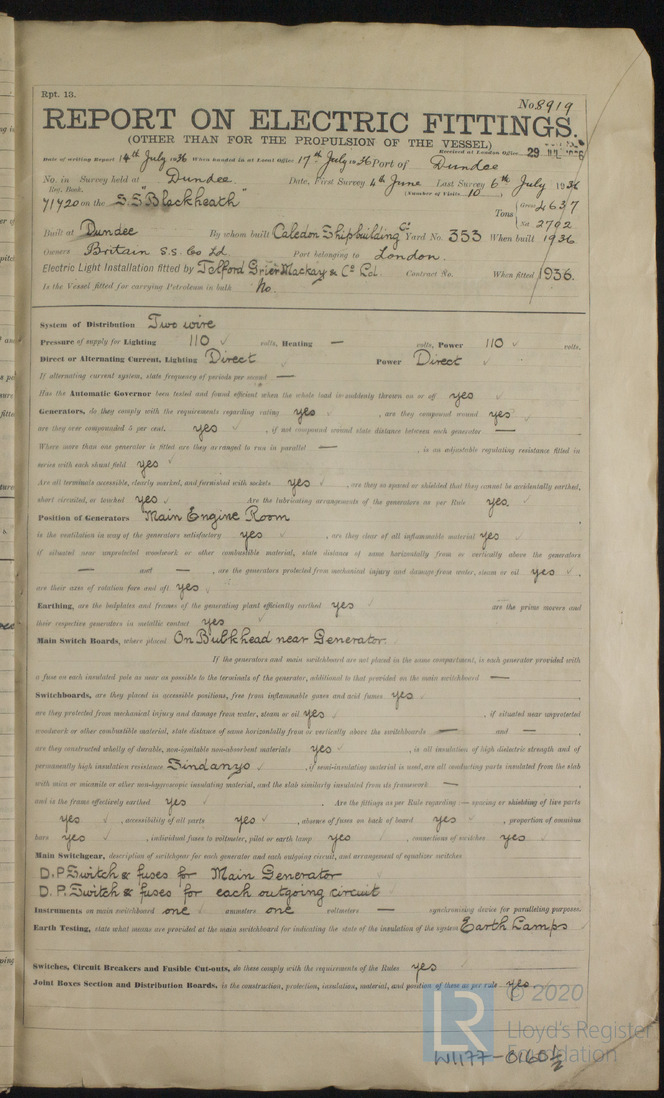 Rpt. 13.
No 8919
REPORT ON ELECTRIC FITTINGS.
(OTHER THAN FOR THE PROPULSION OF THE VESSEL)
Received at London Office 29
Date of writing Report 14th July 1936 When handed in at Local Office 17th July 1936 Port of Dundee
No. in Survey held at Dundee. Date, First Survey 4th June Last Survey 6th July 1936
Reg. Book. (Number of Visits 10)
71720 on the S.S. "Blackheath" Tons { Gross 4637
Net 2702
Built at Dundee By whom built Caledon Shipbuilding Co Yard No. 353 When built 1936
Owners Britain S.S. Co Ld. Port belonging to London.
Electric Light Installation fitted by Telford Grier Mackay & Co Ld. Contract No. When fitted 1936.
Is the Vessel fitted for carrying Petroleum in bulk No.
System of Distribution Two wire
Pressure of supply for Lighting 110 ✓ volts, Heating — volts, Power 110 ✓ volts.
Direct or Alternating Current, Lighting Direct ✓ Power Direct ✓
If alternating current system, state frequency of periods per second —
Has the Automatic Governor been tested and found efficient when the whole load is suddenly thrown on or off yes ✓
Generators, do they comply with the requirements regarding rating yes ✓ , are they compound wound yes ✓
are they over compounded 5 per cent. yes ✓ , if not compound wound state distance between each generator —
Where more than one generator is fitted are they arranged to run in parallel — , is an adjustable regulating resistance fitted in
series with each shunt field yes ✓
Are all terminals accessible, clearly marked, and furnished with sockets yes ✓ , are they so spaced or shielded that they cannot be accidentally earthed,
short circuited, or touched yes ✓ Are the lubricating arrangements of the generators as per Rule yes.
Position of Generators Main Engine Room
is the ventilation in way of the generators satisfactory yes ✓ , are they clear of all inflammable material yes ✓
if situated near unprotected woodwork or other combustible material, state distance of same horizontally from or vertically above the generators
— and — , are the generators protected from mechanical injury and damage from water, steam or oil yes ✓ ,
are their axes of rotation fore and aft yes ✓
Earthing, are the bedplates and frames of the generating plant efficiently earthed yes ✓ are the prime movers and
their respective generators in metallic contact yes ✓
Main Switch Boards, where placed On Bulkhead near Generator
If the generators and main switchboard are not placed in the same compartment, is each generator provided with
a fuse on each insulated pole as near as possible to the terminals of the generator, additional to that provided on the main switchboard —
Switchboards, are they placed in accessible positions, free from inflammable gases and acid fumes yes ✓
are they protected from mechanical injury and damage from water, steam or oil yes ✓ , if situated near unprotected
woodwork or other combustible material, state distance of same horizontally from or vertically above the switchboards — and — ,
are they constructed wholly of durable, non-ignitable non-absorbent materials yes ✓ , is all insulation of high dielectric strength and of
permanently high insulation resistance Sindanyo ✓ , if semi-insulating material is used, are all conducting parts insulated from the slab
with mica or micanite or other non-hygroscopic insulating material, and the slab similarly insulated from its framework — ,
and is the frame effectively earthed yes ✓ . Are the fittings as per Rule regarding:— spacing or shielding of live parts
yes ✓ , accessibility of all parts yes ✓ , absence of fuses on back of board yes ✓ , proportion of omnibus
bars yes ✓ , individual fuses to voltmeter, pilot or earth lamp yes ✓ , connections of switches yes ✓
Main Switchgear, description of switchgear for each generator and each outgoing circuit, and arrangement of equalizer switches
D.P. Switch & fuses for Main Generator
D.P. Switch & fuses for each outgoing circuit
Instruments on main switchboard one ✓ ammeters one voltmeters — synchronising device for paralleling purposes.
Earth Testing, state what means are provided at the main switchboard for indicating the state of the insulation of the system Earth Lamps ✓
Switches, Circuit Breakers and Fusible Cut-outs, do these comply with the requirements of the Rules yes ✓
Joint Boxes Section and Distribution Boards, is the construction, protection, insulation, material, and position of these as per rule yes.
LR
© 2020
Lloyd's Register
Foundation
W1177-0160½